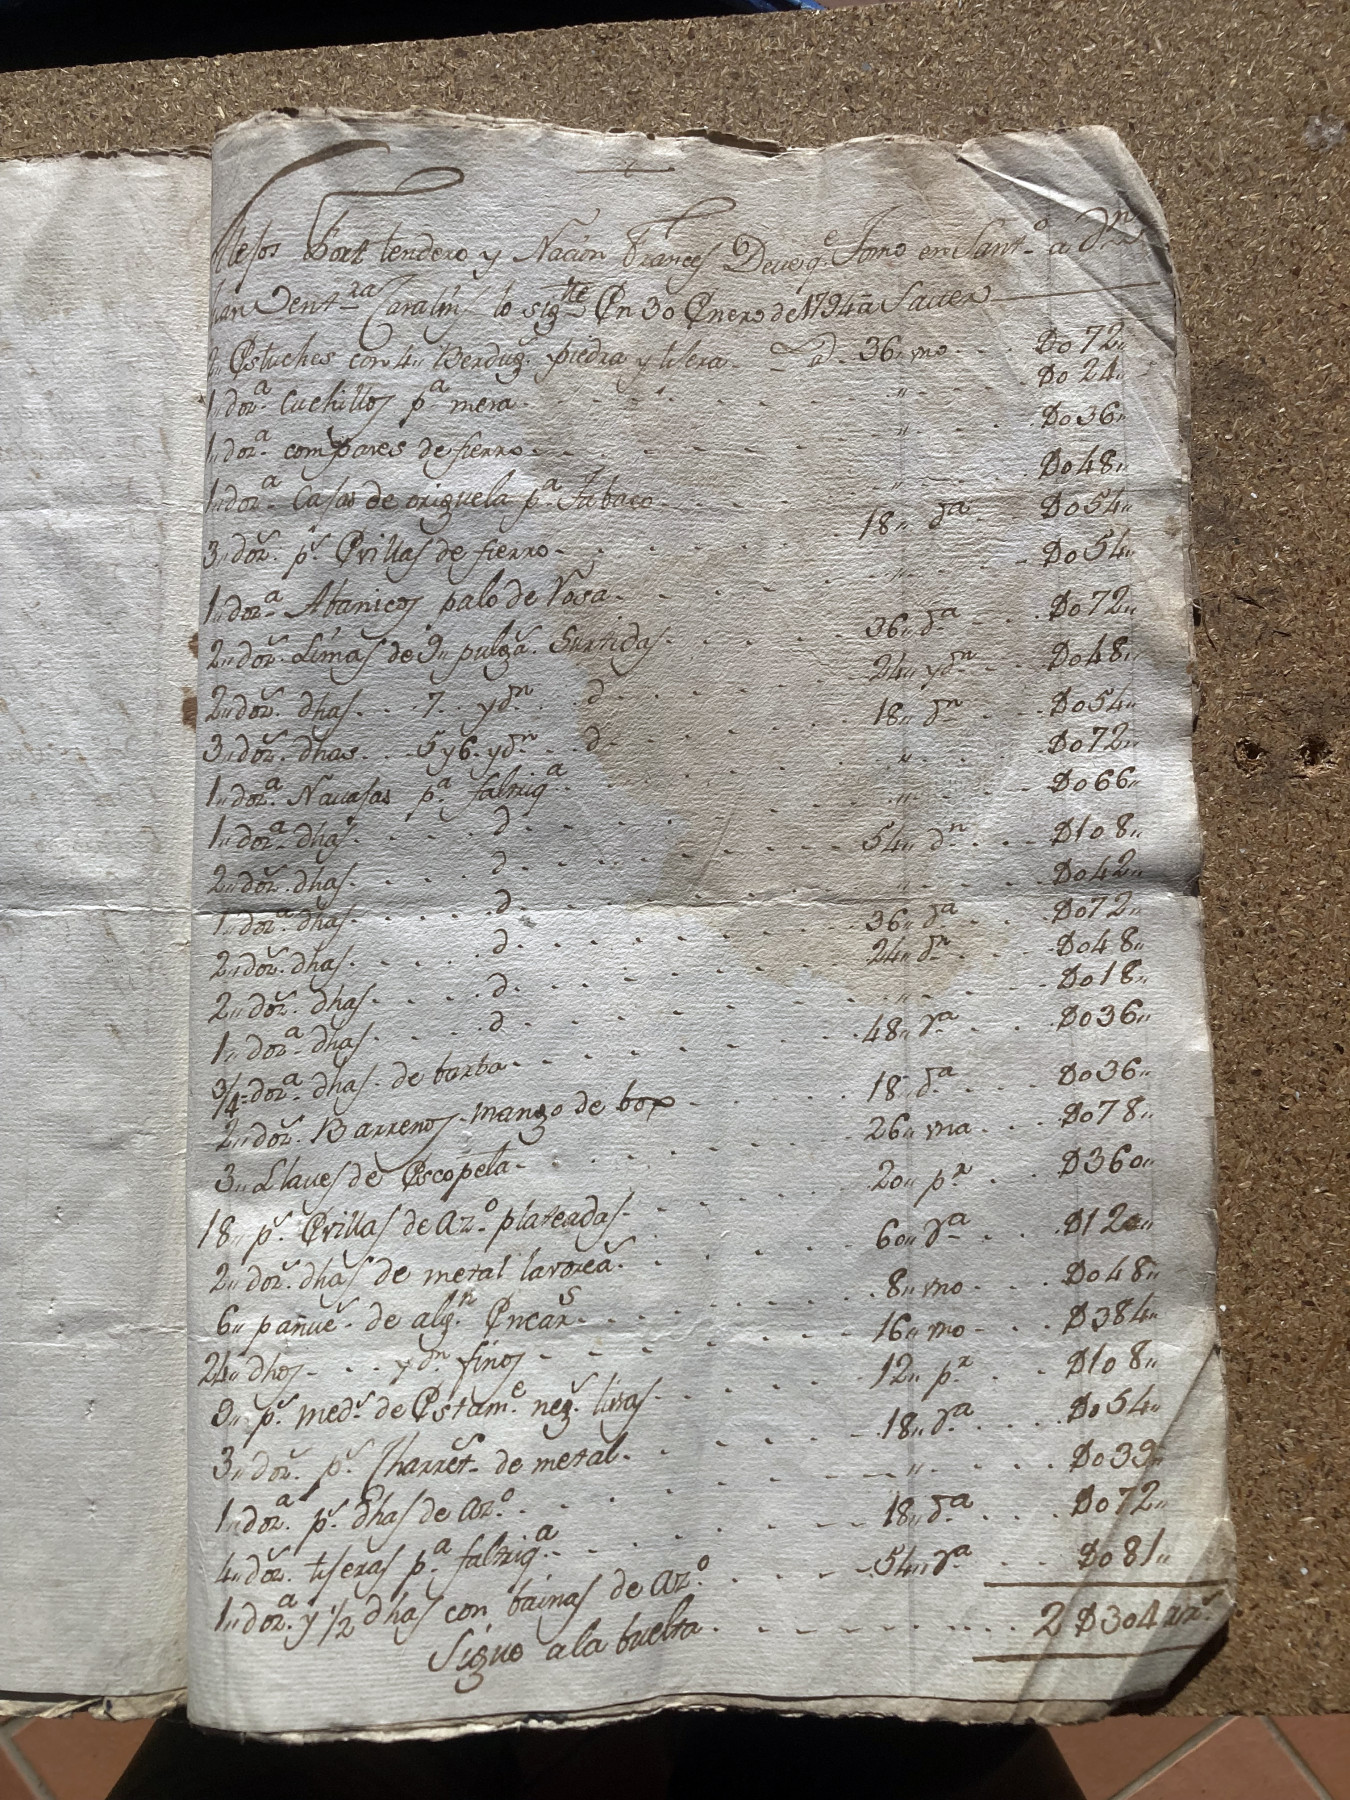 Tort tendero y Nacion Frances Deve q.e Tomo en Sant.o a D.n
Juan Vent.ra lo sig.te En 30 Enero de 1794 a Saver
2,, Estuches con 4,, Berdug.s piedra y tisera - - a 36,, uno - - Do72,,
1,, doz.a Cuchillos p.a mesa - - ,, - - Do24,,
1,, doz.a compases de fierro - - ,, - - Do36,,
1,, doz.a Casas de p.a Tabaco - - ,, - - Do48,,
3,, doz.s p.s Evillas de fierro - - 18,, d.a - Do54,,
1,, doz.a Abanicos palo de Rosa - - ,, - - Do54,,
2,, doz.s Limas de 9,, pulga.s Surtidas - - 36,, d.a - - Do72,,
2,, doz.s dhas - - 7 - - yd.n - - d - - 24,, yd.n - - Do48,,
3,, doz.s dhas - - 5 y 6 - yd.n - - d - - 18,, d.n - - Do54,,
1,, doz.a Navajas p.a faltriq.a - - ,, - - Do72,,
1,, doz.a dhas - - d - - ,, - - Do66,,
2,, doz.s dhas - - d - - 54,, d.n - - D108,,
1,, doz.a dhas - - d - - ,, - - Do42,,
2,, doz.s dhas - - d - - 36,, d.a - - Do72,,
2,, doz.s dhas - - d - - 24,, d.n - - Do48,,
1,, doz.a dhas - - d - - ,, - - Do18,,
3/4 doz.a dhas de barba - - 48,, d.a - - Do36,,
2,, doz.s Barrenos mango de box - - 18,, d.a - - Do36,,
3,, Llaves de Escopeta - - 26,, una - - Do78,,
18,, p.s Evillas de az.o plateadas - - 20,, p.r - - D360,,
2,, doz.s dhas de metal - - 60,, d.a - - D120,,
6,, pañue.s de alg.n Encar.s - - 8,, uno - - Do48,,
24,, dhos - - yd.n finos - - 16,, uno - - D384,,
9,, p.s med.s de Estam.e neg.s lisas - - 12,, p.r - - D108,,
3,, doz.s p.s Charret.s de metal - - 18,, d.a - - Do54,,
1,, doz.a p.s dhas de az.o - - ,, - - Do39,,
4,, doz.s tiseras p.a faltriq.a - - 18,, d.a - - Do72,,
1,, doz.a y 1/2 dhas con bainas de az.o - - 54,, d.a - - Do81,,
Sigue a la buelta - - 2D304 rr.s